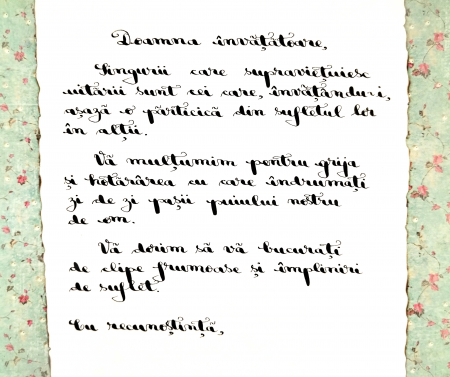 Doamna învățătoare,
Singurii care supraviețuiesc
uitării sunt cei care, învățându-i,
așază o părticică din sufletul lor
în alții.
Vă mulțumim pentru grija
și hotărârea cu care îndrumați
zi de zi pașii puiului nostru
de om.
Vă dorim să vă bucurați
de clipe frumoase și împliniri
de suflet.
Cu recunoștință,